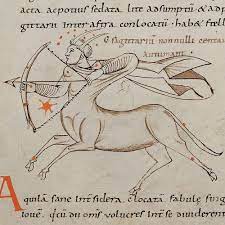 acta ac potius sedata lite adsumptũ & ad
gittarii inter astra conlocatũ habe& stell
Sagittarii non nulli centau
autumant
Aquilã sane int̃ sidera clocatã fabule sing
ioue᷑. q̃cũ dũ om̃s volucres int̃ se dividerent